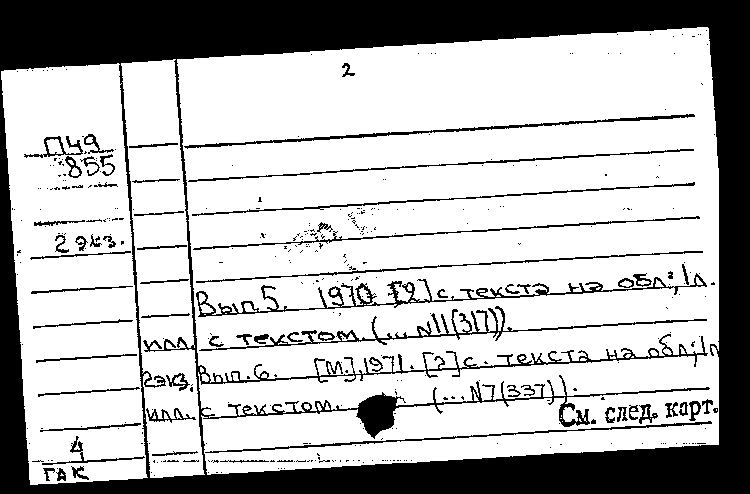 2
П49
855
2 экз.
Вып. 5. 1970. [2] с. текста на обл.; 1 л.
илл. с текстом. (... N11(317)).
2 экз. Вып. 6. [М.], 1971. [2] с. текста на обл.; 1 л
илл. с текстом. (... N7(337)).
См. след. карт.
4
ГАК